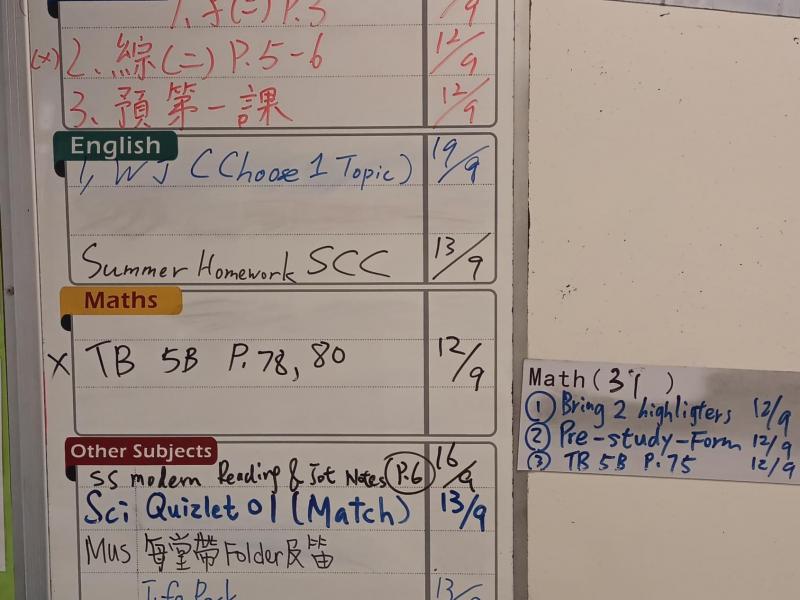 P.5 9
(x) 2、綜(二) P.5-6 12/9
3、預第一課 12/9
English
1, WJ (Choose 1 Topic) 19/9
Summer Homework SCC 13/9
Maths
X TB 5B P.78, 80 12/9
Other Subjects
SS modern Reading & Jot Notes P.6 16/9
Sci Quizlet 01 (Match) 13/9
Mus 每堂帶Folder及笛
Info Pack 13/
Math( 31 )
① Bring 2 highligters 12/9
② Pre-study-Form 12/9
③ TB 5B P.75 12/9